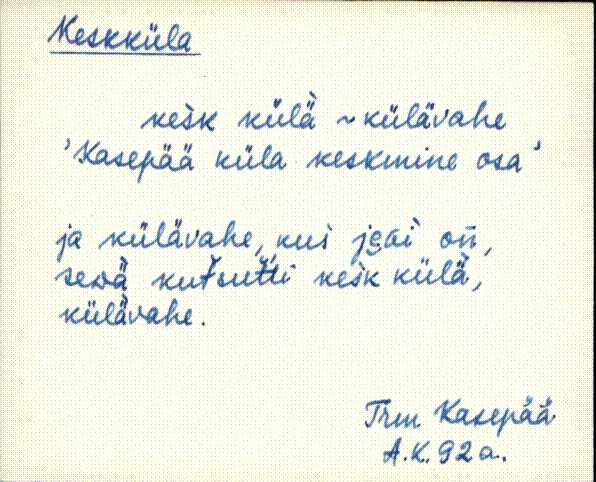 Keskküla
kèsk külà̈ ~ külävahe
'Kasepää küla keskmine osa'
ja külävahe, kus jɢai on̄,
sedä kutsutti kèsk külà̈,
külävahe.
Trm Kasepää
A.K. 92 a.